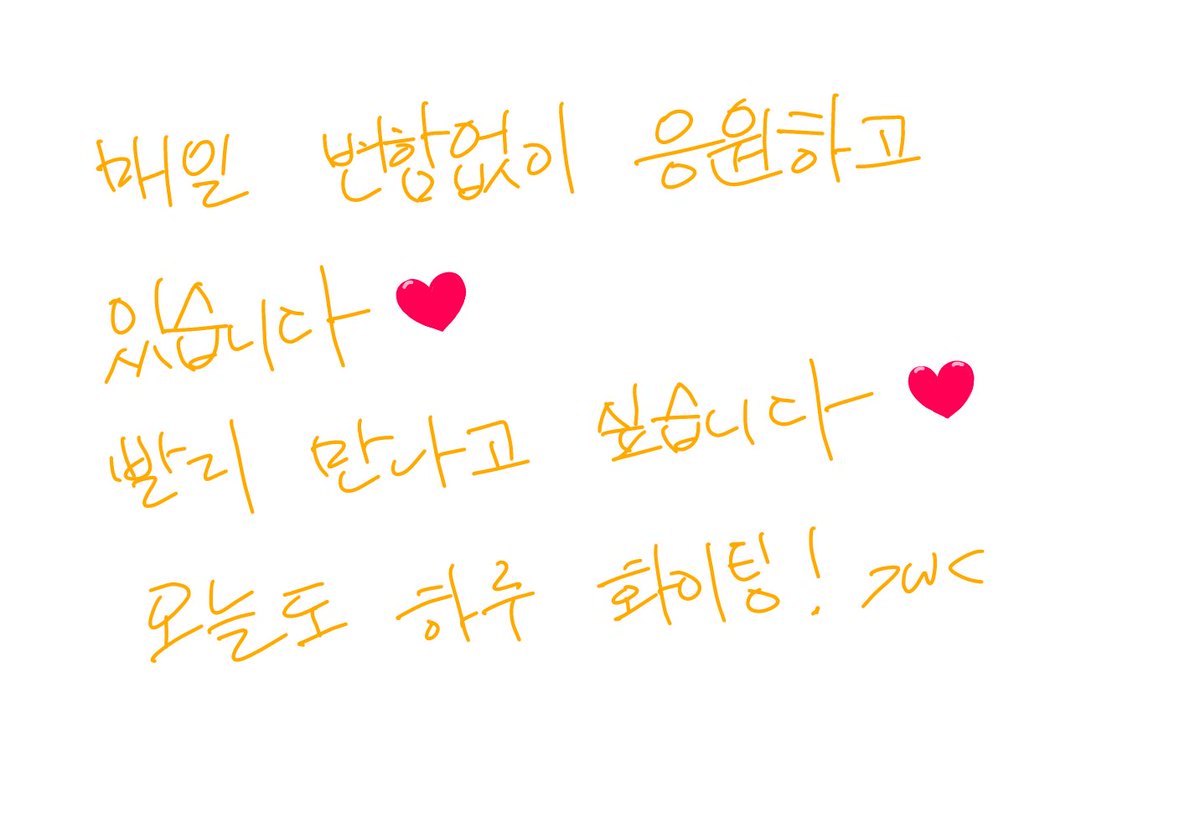 매일 변함없이 응원하고
있습니다 ❤
빨리 만나고 싶습니다 ❤
오늘도 하루 화이팅! >w<